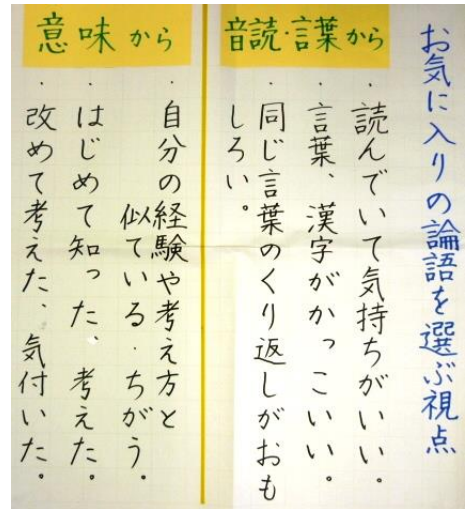 お気に入りの論語を選ぶ視点
音読・言葉から
・読んでいて気持ちがいい。
・言葉、漢字がかっこいい。
・同じ言葉のくり返しがおも
しろい。
意味から
・自分の経験や考え方と
似ている・ちがう。
・はじめて知った、考えた。
・改めて考えた、気付いた。